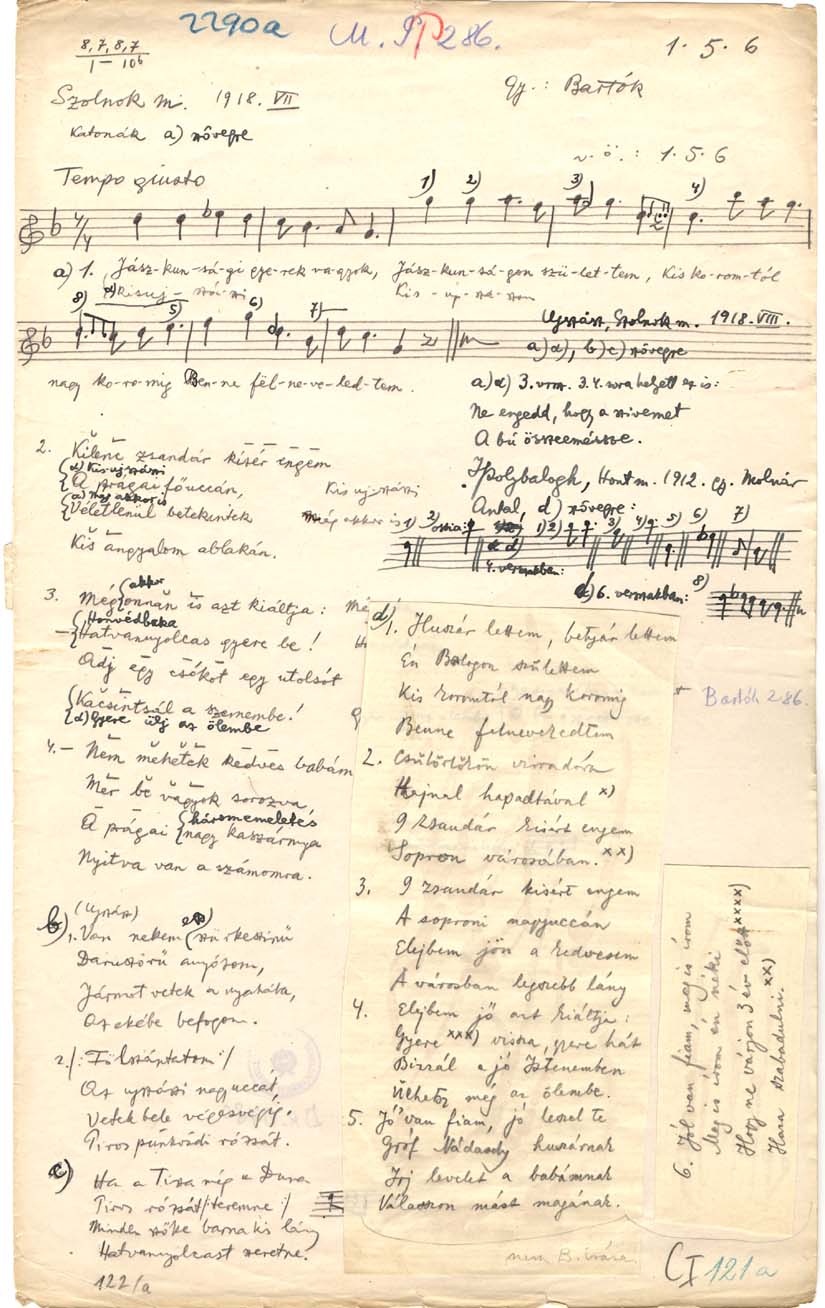 2290a
M. P 286.
1. 5. 6
8, 7, 8, 7
1 — 10b
Szolnok m. 1918. VII
gy.: Bartók
Katonák a) szövegre
v. ö. : 1. 5. 6
Tempo giusto
1) 2) 3) 4)
a) 1. Jász-kun-sá-gi gye-rek va-gyok, Jász-kun-sá-gon szü-let-tem, Kis ko-rom-tól
Kisuj-szál-si
Kis-uj-szá-son
8) 5) 6) 7)
nagy ko-ro-mig Ben-ne fël-ne-ve-led-tem.
Ujszász, Szolnok m. 1918. VIII.
a) d), b) c) szövegre
a) d) 3. vrsz. 3. 4. sora helyett ez is:
Ne engedd, hogy a szivemet
A bú összeeméssze.
2. Kilenc zsandár kisér engëm
d) Kisujszási
A prágai főuccán,
a) Még akkor is
Véletlenül betekintek
Kis angyalom ablakán.
Kis ujszási
még akkor is
Ipolybalogh, Hont m. 1912. gy. Molnár
Antal, d) szövegre:
1) 2) ossia: 1) 2) 3) 4) 5) 6) 7)
4. versszakban:
d) 6. versszakban: 8)
3. Mégonnan is azt kiáltja:
akkor
Honvédbaka
Hatvannyolcas gyere be!
Adj egy csókot egy utolsót
Kacsintsál a szemembe!
d) Gyere ülj az ölembe
4. — Nem mehetek kedves babám
Mer be vagyok sorozva,
A prágai nagy kaszárnya
háromemeletës
Nyitva van a számomra.
b) (Ujszász)
1. Van nekem szürkeszinü
Daruszőrü anyósom,
Jármot vetek a nyakába,
Az ekébe befogom.
2. /: Fölszántatom :/
Az ujszászi nagyuccát,
Vetek bele végesvégig
Piros pünkösdi rózsát.
c) Ha a Tisza még a Duna
Piros rózsát /: teremne :/
Minden szőke barna kis lány
Hatvannyolcast szeretne.
122/a
d) 1. Huszár lettem, betyár lettem
Én Balogon születtem
Kis koromtól nagy koromig
Benne felnevekedtem
2. Csütörtökön virradóra
Hajnal hapadtával x)
9 zsandár kisért engem
Sopron városában. xx)
3. 9 zsandár kisért engem
A soproni nagyuccán
Elejbem jön a kedvesem
A városban legszebb lány
4. Elejbem jő azt kiáltja:
Gyere xxx) vissza, gyere hát
Bizzál a jó Istenemben
Ülhetsz még az ölembe.
5. Jó van fiam, jó leszel te
Gróf Nádasdy huszárnak
Irj levelet a babámnak
Válasszon mást magának.
Bartók 286.
6. Jól van fiam, meg is irom
Meg is irom én néki
Hogy ne várjon 3 év előtt xxxx)
Haza szabadulni. xx)
nem B. irása
CI 121a